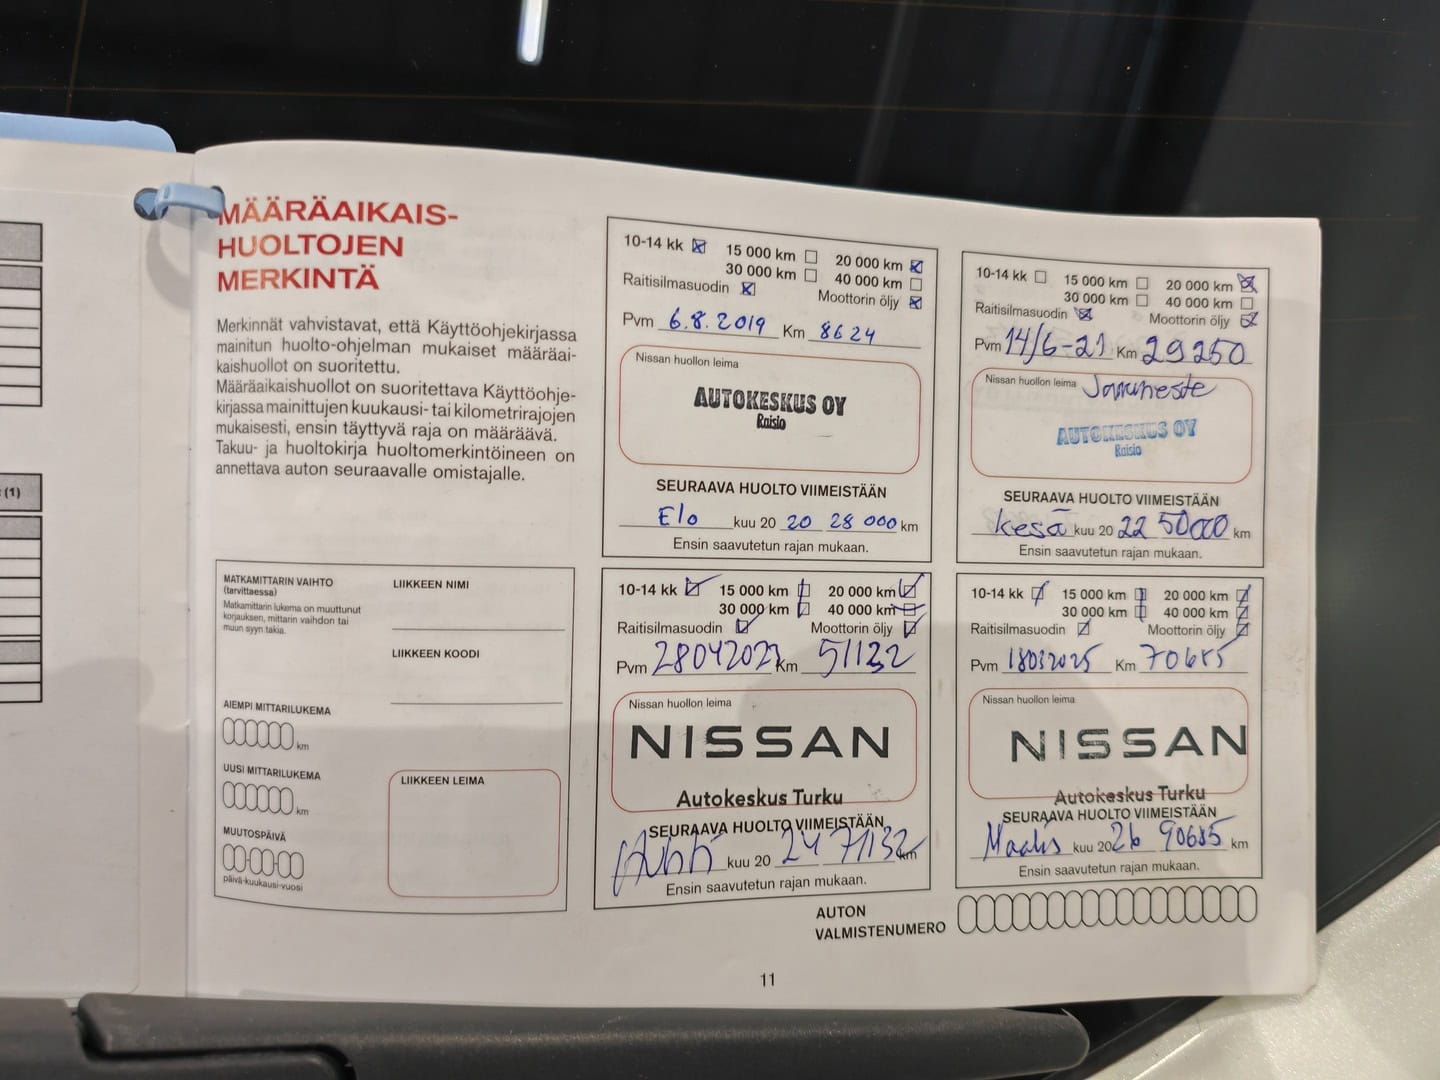 MÄÄRÄAIKAIS-
HUOLTOJEN
MERKINTÄ
Merkinnät vahvistavat, että Käyttöohjekirjassa
mainitun huolto-ohjelman mukaiset määräai-
kaishuollot on suoritettu.
Määräaikaishuollot on suoritettava Käyttöohje-
kirjassa mainittujen kuukausi- tai kilometrirajojen
mukaisesti, ensin täyttyvä raja on määräävä.
Takuu- ja huoltokirja huoltomerkintöineen on
annettava auton seuraavalle omistajalle.
MATKAMITTARIN VAIHTO
(tarvittaessa)
Matkamittarin lukema on muuttunut
korjauksen, mittarin vaihdon tai
muun syyn takia.
AIEMPI MITTARILUKEMA
km
UUSI MITTARILUKEMA
km
MUUTOSPÄIVÄ
päivä-kuukausi-vuosi
LIIKKEEN NIMI
LIIKKEEN KOODI
LIIKKEEN LEIMA
10-14 kk 15 000 km 20 000 km
30 000 km 40 000 km
Raitisilmasuodin Moottorin öljy
Pvm 6.8.2019 Km 8624
Nissan huollon leima
AUTOKESKUS OY
Raisio
SEURAAVA HUOLTO VIIMEISTÄÄN
Elo kuu 20 20 28 000 km
Ensin saavutetun rajan mukaan.
10-14 kk 15 000 km 20 000 km
30 000 km 40 000 km
Raitisilmasuodin Moottorin öljy
Pvm 14/6-21 Km 29250
Nissan huollon leima Jarruneste
AUTOKESKUS OY
Raisio
SEURAAVA HUOLTO VIIMEISTÄÄN
kesä kuu 20 22 50000 km
Ensin saavutetun rajan mukaan.
10-14 kk 15 000 km 20 000 km
30 000 km 40 000 km
Raitisilmasuodin Moottorin öljy
Pvm 28042023 Km 51132
Nissan huollon leima
NISSAN
Autokeskus Turku
SEURAAVA HUOLTO VIIMEISTÄÄN
Huhti kuu 20 24 71132 km
Ensin saavutetun rajan mukaan.
10-14 kk 15 000 km 20 000 km
30 000 km 40 000 km
Raitisilmasuodin Moottorin öljy
Pvm 18032025 Km 70685
Nissan huollon leima
NISSAN
Autokeskus Turku
SEURAAVA HUOLTO VIIMEISTÄÄN
Maalis kuu 20 26 90685 km
Ensin saavutetun rajan mukaan.
AUTON
VALMISTENUMERO
11
(1)